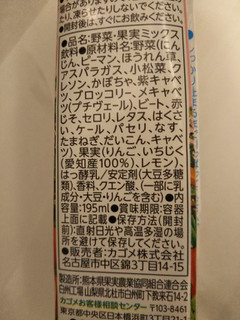 り、凍らせたりしないでください。
●開封後は、すぐにお飲みください。
●品名:野菜・果実ミックス
飲料●原材料名:野菜(にん
じん、ピーマン、ほうれん草、
アスパラガス、小松菜、ク
レソン、かぼちゃ、紫キャベ
ツ、ブロッコリー、メキャベ
ツ(プチヴェール)、ビート、赤
じそ、セロリ、レタス、はくさ
い、ケール、パセリ、なす、
たまねぎ、だいこん、キャベ
ツ)、果実(りんご、いちじく
(愛知産100%)、レモン)、
はっ酵乳/安定剤(大豆多糖
類)、香料、クエン酸、(一部に乳
成分・大豆・りんごを含む)●内
容量:195ml●賞味期限:容器
上面に記載●保存方法(開封
前):直射日光や高温多湿の場
所を避けて保存してください。
●販売者:カゴメ株式会社
名古屋市中区錦3丁目14-15
製造所:熊本県果実農業協同組合連合会
白州工場 山梨県北杜市白州町
カゴメお客様相談センター 〒103-8461
東京都中央区日本橋浜町